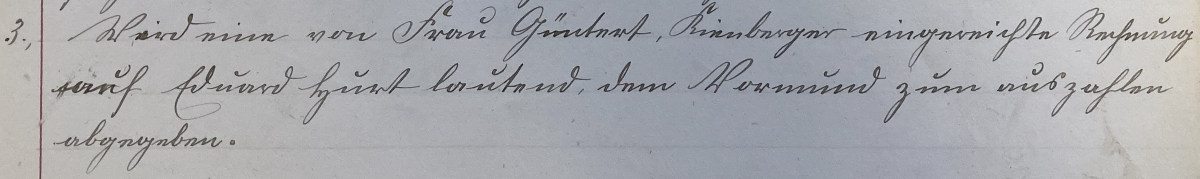 3., Wird eine von Frau Güntert, Kienberger eingereichte Rechnung
auf Eduard Hurt lautend, dem Vormund zum auszahlen
abgegeben.